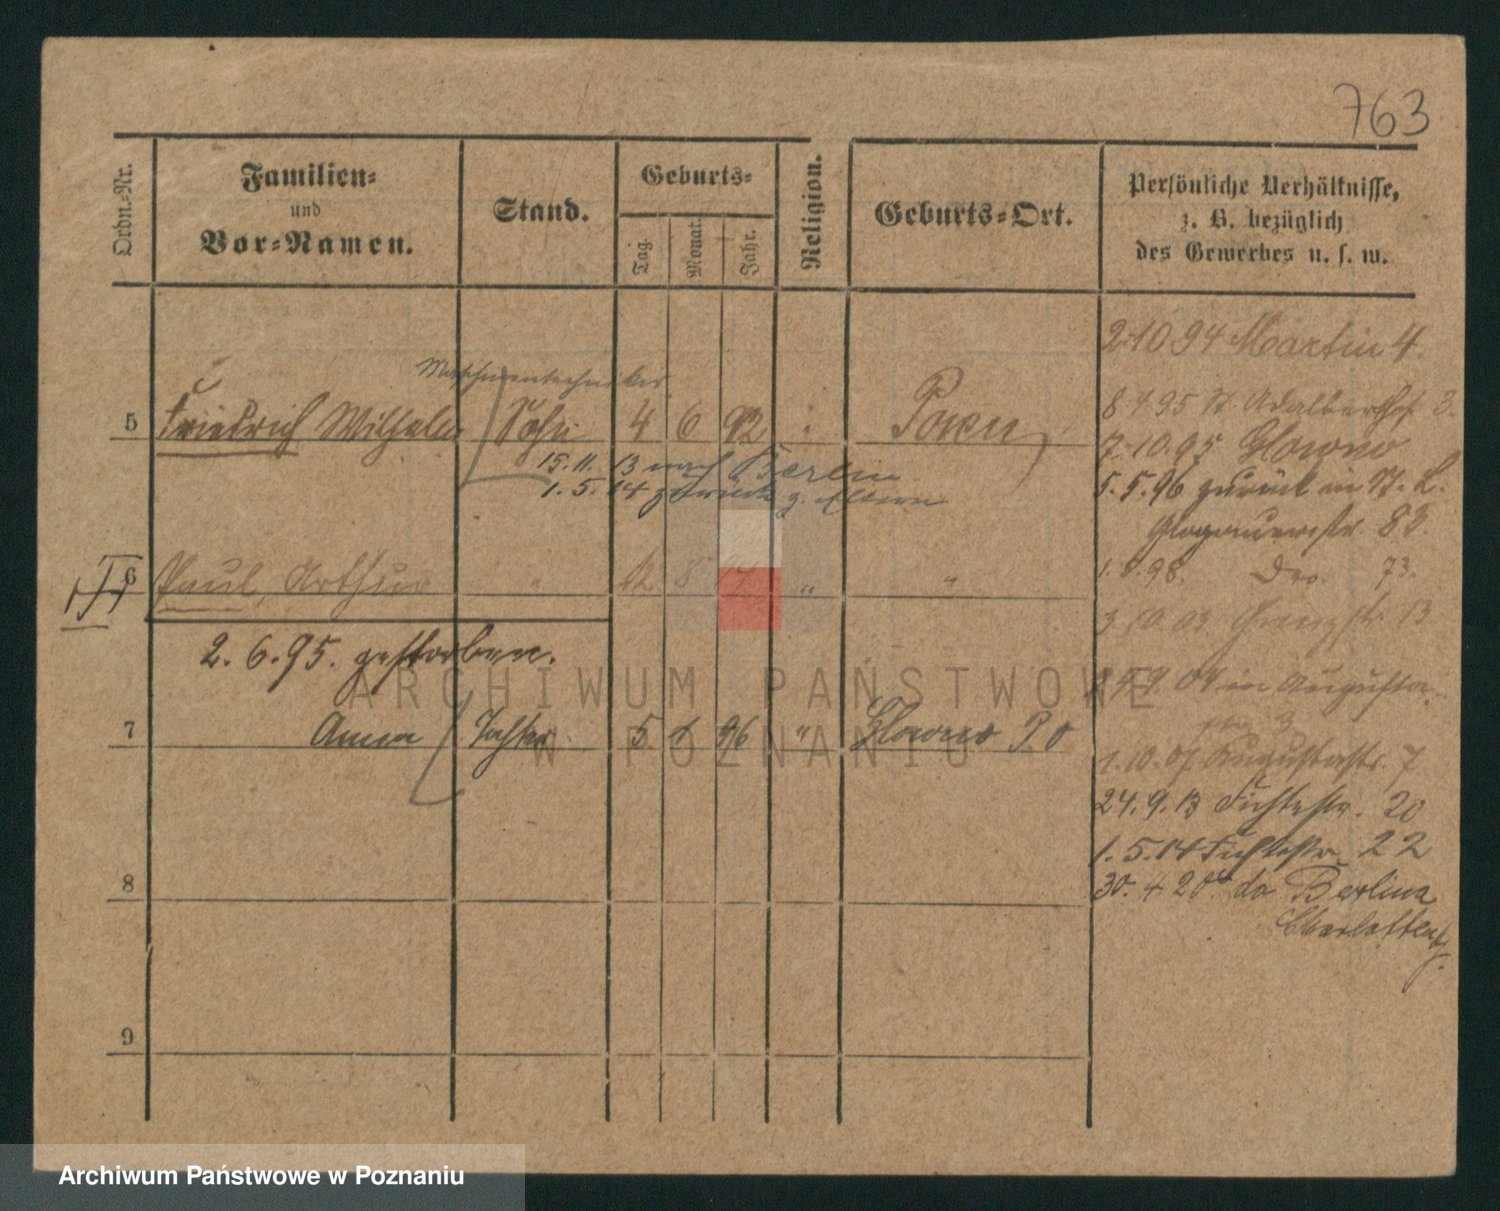 763
Ordn.-Nr.
Familien-
und
Vor-Namen.
Stand.
Geburts-
Tag.
Monat.
Jahr.
Religion.
Geburts-Ort.
Persönliche Verhältnisse,
z. B. bezüglich
des Gewerbes u. s. w.
2.10 94 Martin 4.
Maschinentechniker
8 4.95 St Adalberthof 3.
5 Friedrich Wilhelm Sohn 4 6 92 Posen
7.10.95 Glowno
15.11.13 nach Berlin
1.5.14 zurück z. Eltern
5.5.96 zurück in St. L.
Glogauerstr. 83.
6 Paul, Arthur " 12 8 " "
1. 98. Dro. 73.
2.6.95. gestorben.
3 10.03 Grenzstr. 13
9.04 in Augusta
7 Anna Tochter 5 1 96 " Glowno P. O
1.10.07 Augustastr. 7
24.9.13 Fichtestr. 20
1.5.14 Fichtestr. 22
8
30.4 20 do Berlin
Charlottenbg.
9
ARCHIWUM PAŃSTWOWE
W POZNANIU
Archiwum Państwowe w Poznaniu